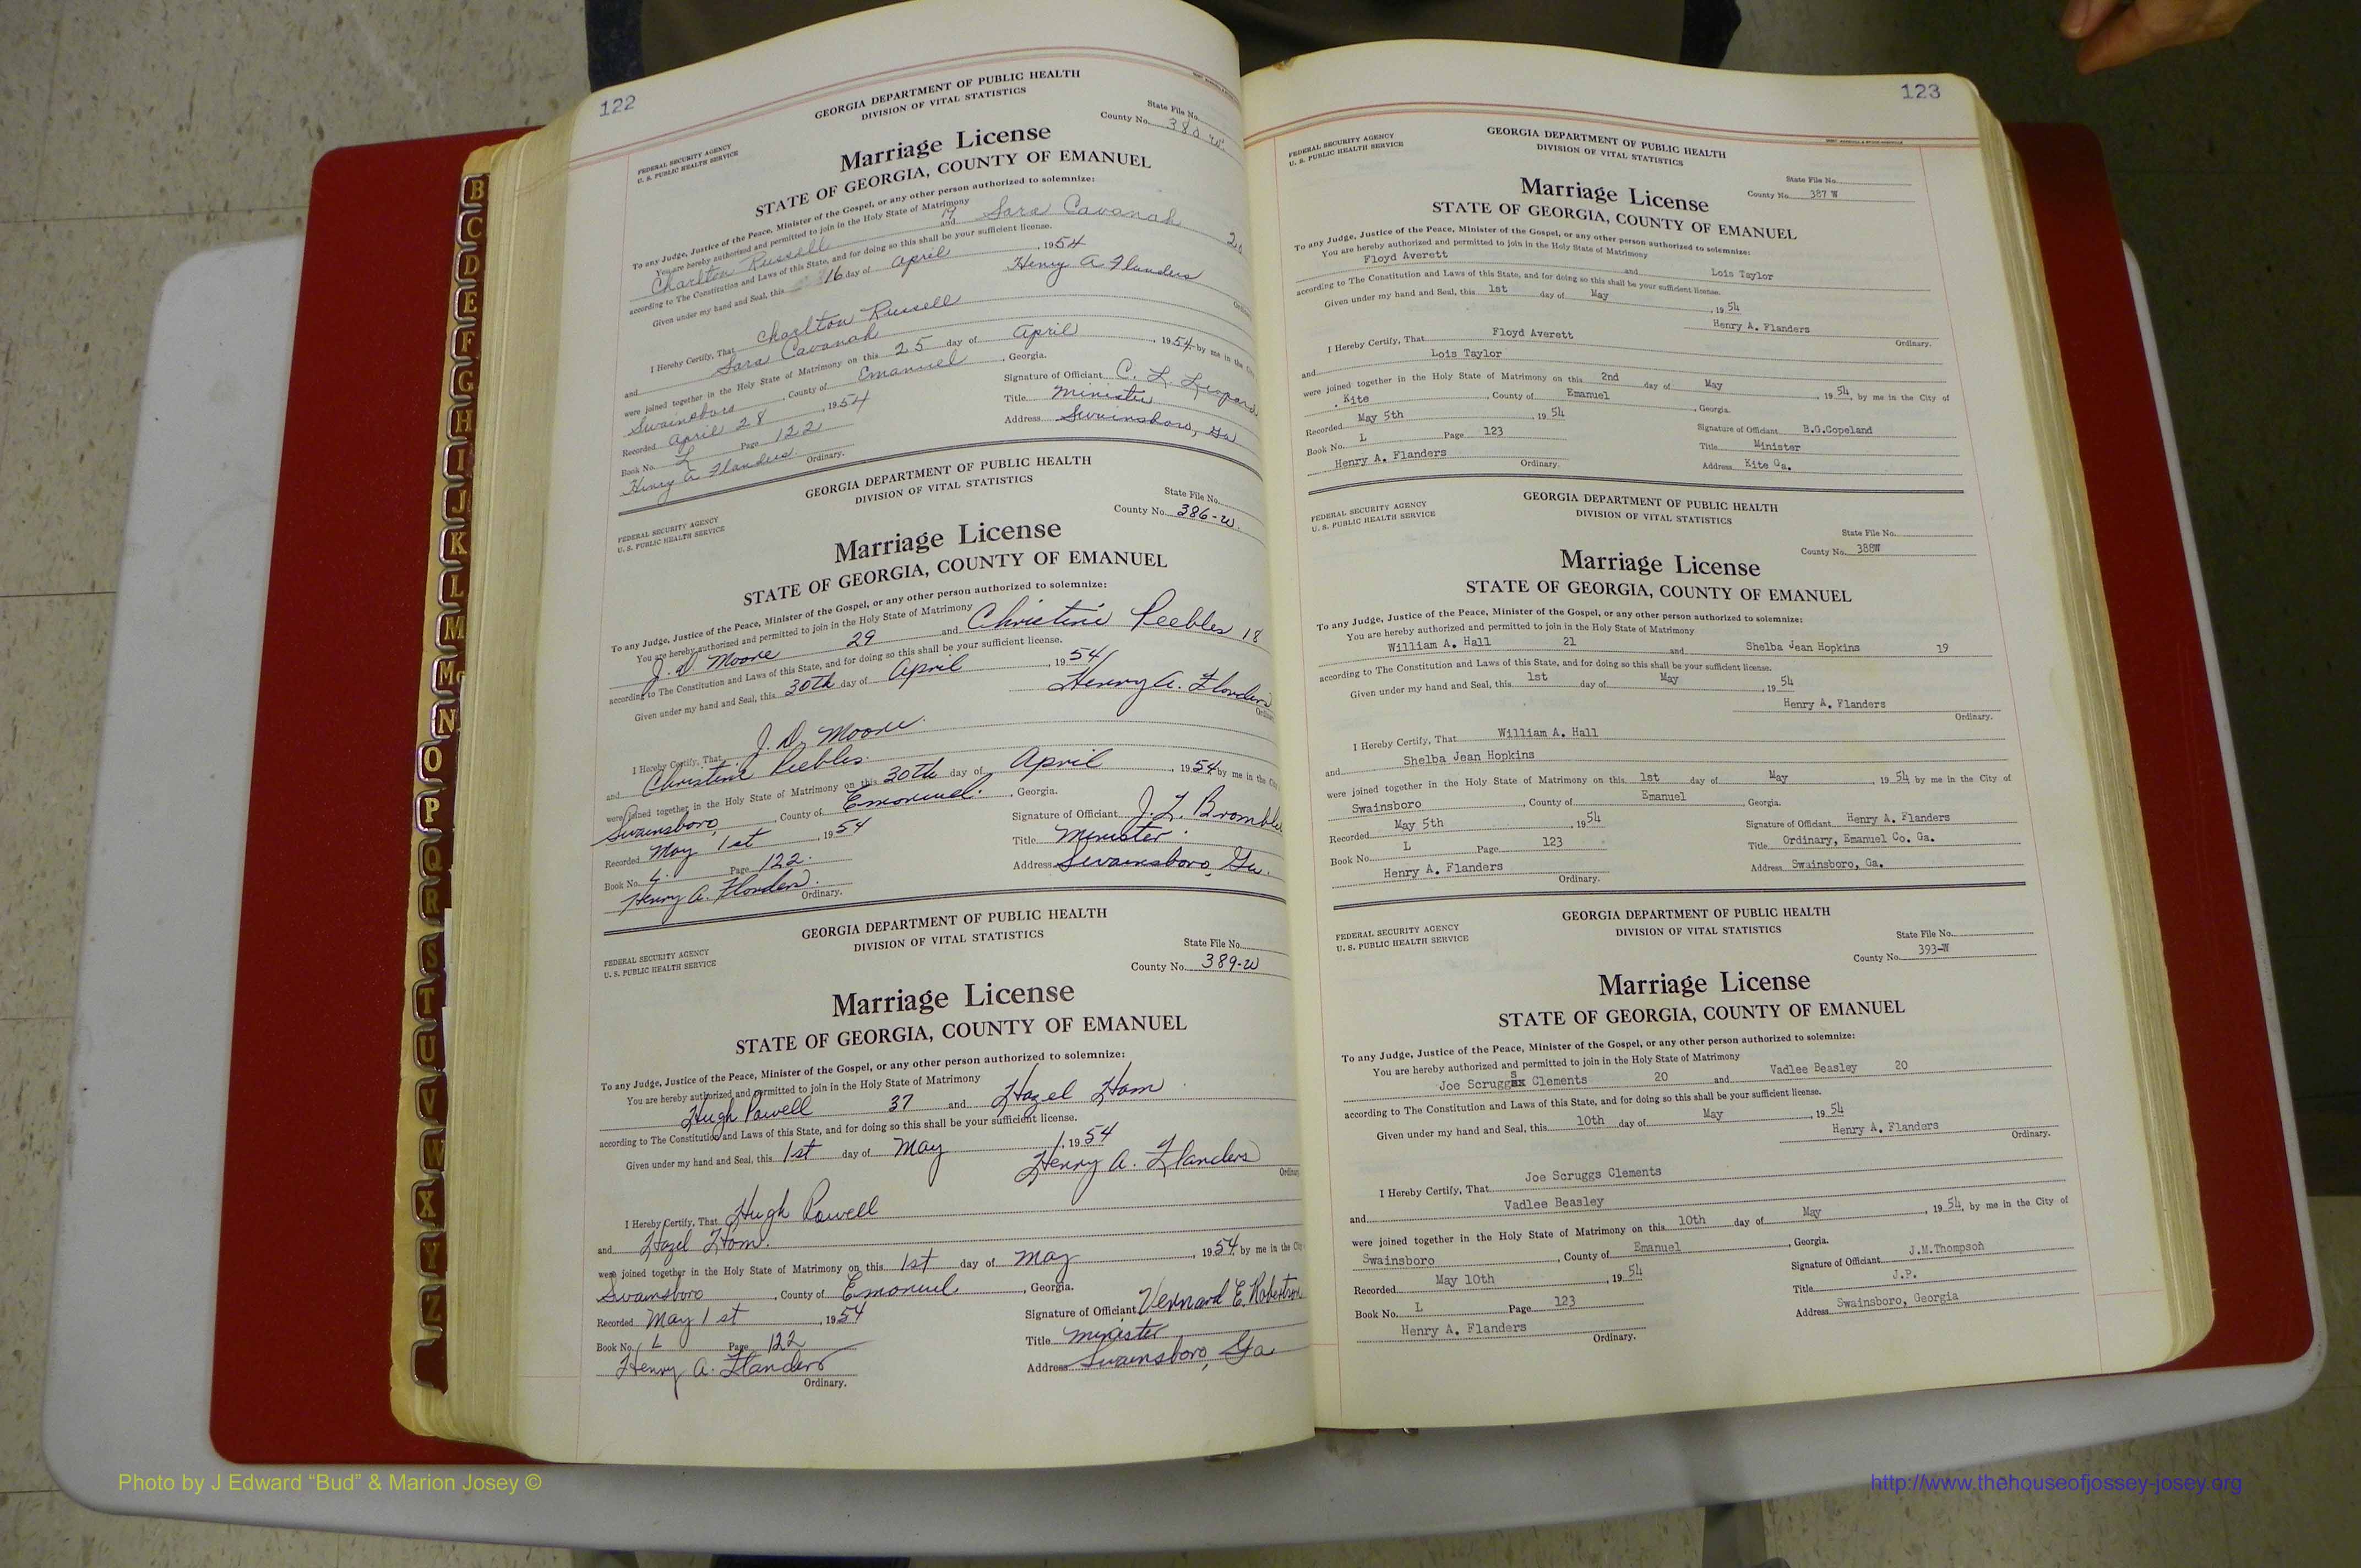 122
GEORGIA DEPARTMENT OF PUBLIC HEALTH
DIVISION OF VITAL STATISTICS
FEDERAL SECURITY AGENCY
U. S. PUBLIC HEALTH SERVICE
State File No.
County No.
Marriage License
STATE OF GEORGIA, COUNTY OF EMANUEL
To any Judge, Justice of the Peace, Minister of the Gospel, or any other person authorized to solemnize:
You are hereby authorized and permitted to join in the Holy State of Matrimony
Charlton Russell and Sara Cavanah
according to The Constitution and Laws of this State, and for doing so this shall be your sufficient license.
Given under my hand and Seal, this 16 day of April, 1954
Henry A Flanders
I Hereby Certify, That Charlton Russell
and Sara Cavanah
were joined together in the Holy State of Matrimony on this 25 day of April, 1954 by me in the
Swainsboro, County of Emanuel, Georgia.
Recorded April 28, 1954
Signature of Officiant C. L.
Book No. L Page 122
Title Minister
Henry A Flanders Ordinary.
Address Swainsboro, Ga
GEORGIA DEPARTMENT OF PUBLIC HEALTH
DIVISION OF VITAL STATISTICS
FEDERAL SECURITY AGENCY
U. S. PUBLIC HEALTH SERVICE
State File No.
County No. 386-W
Marriage License
STATE OF GEORGIA, COUNTY OF EMANUEL
To any Judge, Justice of the Peace, Minister of the Gospel, or any other person authorized to solemnize:
You are hereby authorized and permitted to join in the Holy State of Matrimony
J. D. Moore 29 and Christine Peebles 18
according to The Constitution and Laws of this State, and for doing so this shall be your sufficient license.
Given under my hand and Seal, this 30th day of April, 1954
Henry A. Flanders
I Hereby Certify, That J. D. Moore
and Christine Peebles
were joined together in the Holy State of Matrimony on this 30th day of April, 1954 by me in the
Swainsboro, County of Emanuel, Georgia.
Recorded May 1st 1954
Signature of Officiant J. L.
Book No. L Page 122.
Title Minister
Henry A. Flanders Ordinary.
Address Swainsboro, Ga.
GEORGIA DEPARTMENT OF PUBLIC HEALTH
DIVISION OF VITAL STATISTICS
FEDERAL SECURITY AGENCY
U. S. PUBLIC HEALTH SERVICE
State File No.
County No. 389-W
Marriage License
STATE OF GEORGIA, COUNTY OF EMANUEL
To any Judge, Justice of the Peace, Minister of the Gospel, or any other person authorized to solemnize:
You are hereby authorized and permitted to join in the Holy State of Matrimony
Hugh Powell 37 and Hazel Ham
according to The Constitution and Laws of this State, and for doing so this shall be your sufficient license.
Given under my hand and Seal, this 1st day of May, 1954
Henry A. Flanders
I Hereby Certify, That Hugh Powell
and Hazel Ham.
were joined together in the Holy State of Matrimony on this 1st day of May, 1954 by me in the
Swainsboro, County of Emanuel, Georgia.
Recorded May 1st, 1954
Signature of Officiant Vernard E. Robertson
Book No. L Page 122
Title Minister
Henry A. Flanders
Ordinary.
Address Swainsboro, Ga
123
GEORGIA DEPARTMENT OF PUBLIC HEALTH
DIVISION OF VITAL STATISTICS
FEDERAL SECURITY AGENCY
U. S. PUBLIC HEALTH SERVICE
State File No.
County No. 387 W
Marriage License
STATE OF GEORGIA, COUNTY OF EMANUEL
To any Judge, Justice of the Peace, Minister of the Gospel, or any other person authorized to solemnize:
You are hereby authorized and permitted to join in the Holy State of Matrimony
Floyd Averett and Lois Taylor
according to The Constitution and Laws of this State, and for doing so this shall be your sufficient license.
Given under my hand and Seal, this 1st day of May, 19 54
Henry A. Flanders
Ordinary.
I Hereby Certify, That Floyd Averett
and Lois Taylor
were joined together in the Holy State of Matrimony on this 2nd day of May 19 54, by me in the City of
Kite, County of Emanuel, Georgia.
Recorded May 5th 19 54
Signature of Officiant B.G.Copeland
Book No. L Page 123
Title Minister
Henry A. Flanders
Ordinary.
Address Kite Ga.
GEORGIA DEPARTMENT OF PUBLIC HEALTH
DIVISION OF VITAL STATISTICS
FEDERAL SECURITY AGENCY
U. S. PUBLIC HEALTH SERVICE
State File No.
County No. 388W
Marriage License
STATE OF GEORGIA, COUNTY OF EMANUEL
To any Judge, Justice of the Peace, Minister of the Gospel, or any other person authorized to solemnize:
You are hereby authorized and permitted to join in the Holy State of Matrimony
William A. Hall 21 and Shelba Jean Hopkins 19
according to The Constitution and Laws of this State, and for doing so this shall be your sufficient license.
Given under my hand and Seal, this 1st day of May, 19 54
Henry A. Flanders
Ordinary.
I Hereby Certify, That William A. Hall
and Shelba Jean Hopkins
were joined together in the Holy State of Matrimony on this 1st day of May, 19 54 by me in the City of
Swainsboro, County of Emanuel, Georgia.
Recorded May 5th, 19 54
Signature of Officiant Henry A. Flanders
Book No. L Page 123
Title Ordinary, Emanuel Co. Ga.
Henry A. Flanders
Ordinary.
Address Swainsboro, Ga.
GEORGIA DEPARTMENT OF PUBLIC HEALTH
DIVISION OF VITAL STATISTICS
FEDERAL SECURITY AGENCY
U. S. PUBLIC HEALTH SERVICE
State File No.
County No. 393-W
Marriage License
STATE OF GEORGIA, COUNTY OF EMANUEL
To any Judge, Justice of the Peace, Minister of the Gospel, or any other person authorized to solemnize:
You are hereby authorized and permitted to join in the Holy State of Matrimony
Joe Scruggs Clements 20 and Vadlee Beasley 20
according to The Constitution and Laws of this State, and for doing so this shall be your sufficient license.
Given under my hand and Seal, this 10th day of May, 19 54
Henry A. Flanders
Ordinary.
I Hereby Certify, That Joe Scruggs Clements
and Vadlee Beasley
were joined together in the Holy State of Matrimony on this 10th day of May, 19 54, by me in the City of
Swainsboro, County of Emanuel, Georgia.
Recorded May 10th, 19 54
Signature of Officiant J.M.Thompson
Book No. L Page 123
Title J.P.
Henry A. Flanders
Ordinary.
Address Swainsboro, Georgia
B
C
D
E
F
G
H
I
J
K
L
M
Mc
N
O
P
Q
R
S
T
U
V
W
X
Y
Z
Photo by J Edward “Bud” & Marion Josey ©
http://www.thehouseofjossey-josey.org